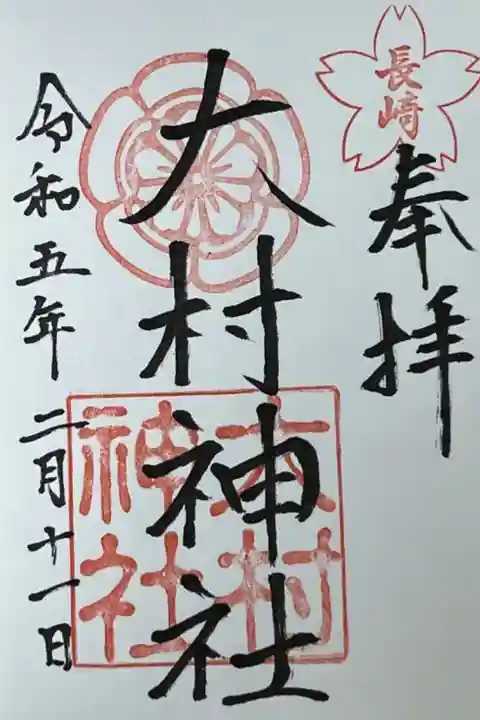 長崎
奉拝
大村神社
大村
神社
令和五年二月十一日